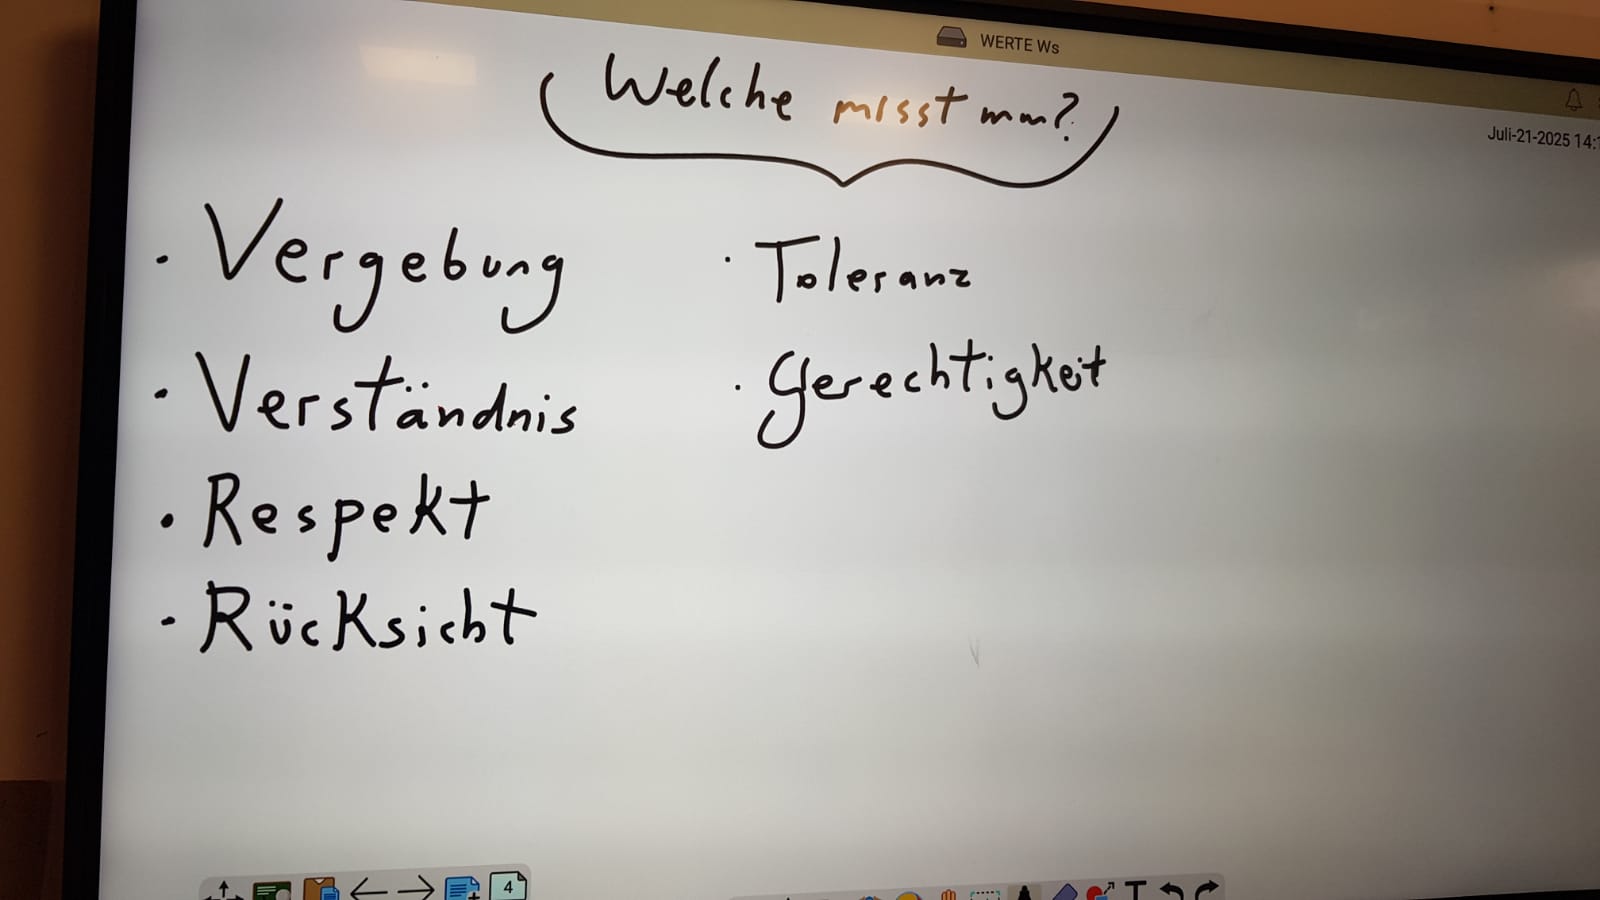 WERTE Ws
Juli-21-2025 14:
Welche misst man?
· Vergebung
· Verständnis
· Respekt
· Rücksicht
· Toleranz
· Gerechtigkeit
4